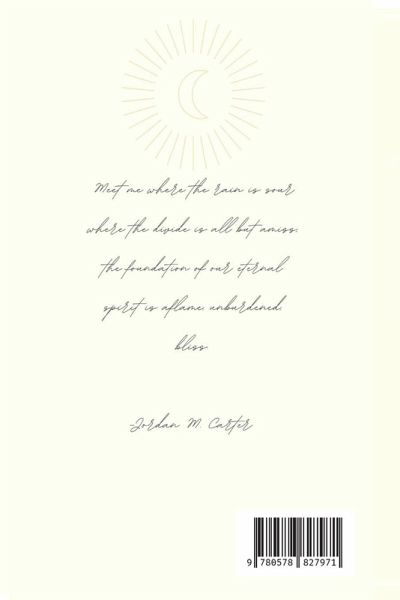 Meet me where the rain is sour
where the divide is all but amiss.
the foundation of our eternal
spirit is aflame. unburdened.
bliss.
-Jordan M. Carter
9 780578 827971